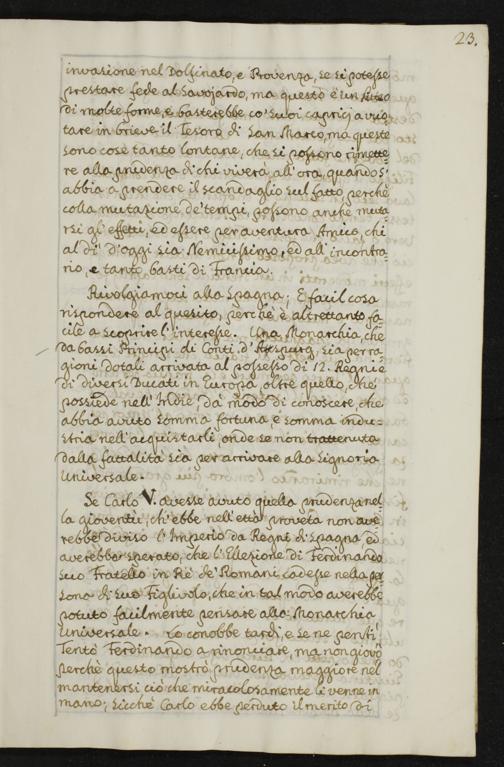 23.
invasione nel Dolfinato, e Provenza, se si potesse
prestare fede al Savojardo, ma questo è un
di molte forme, e basterebbe co' suoi capricj a vuo=
tare in brieve il Tesoro di San Marco, ma queste
sono cose tanto lontane, che si possono rimette=
re alla prudenza di chi viverà all'ora, quando s'
abbia a prendere il scandaglio sul fatto perchè
colla mutazione de' tempi, possono anche muta=
rsi gl'effetti, ed essere per aventura Amico, chi
al dì d'oggi sia Nemicissimo, ed all'incontra=
rio, e tanto basti di Francia.
Rivolgiamoci alla Spagna; È facil cosa
rispondere al quesito, perchè è altrettanto fa
cile a scoprire l'interesse. Una Monarchia, che
da bassi Principj di Conti d'Auspurg, sia per ra
gioni dotali arrivata al possesso di 12. Regni e
di diversi Ducati in Europa, oltre quello, che
possiede nell'Indie, dà modo di conoscere, che
abbia avuto somma fortuna, e somma indu=
stria nell'acquistarli, onde se non trattenuta
dalla fattalità sia per arrivare alla Signoria
Universale.
Se Carlo V. avesse avuto quella prudenza nel=
la gioventù, ch'ebbe nell'età proveta non ave
rebbe diviso l'Imperio da Regni di Spagna ed
averebbe sperato, che l'Ellezione di Ferdinando
suo Fratello in Rè de' Romani cadesse nella per
sona di suo Figlivolo, che in tal modo averebbe
potuto facilmente pensare alla Monarchia
Universale. Lo conobbe tardi, e se ne pentì
Tentò Ferdinando a rinonciare, ma non giovò
perchè questo mostrò prudenza maggiore nel
mantenersi ciò che miracolosamente li venne in
mano; sicchè Carlo ebbe perduto il merito di